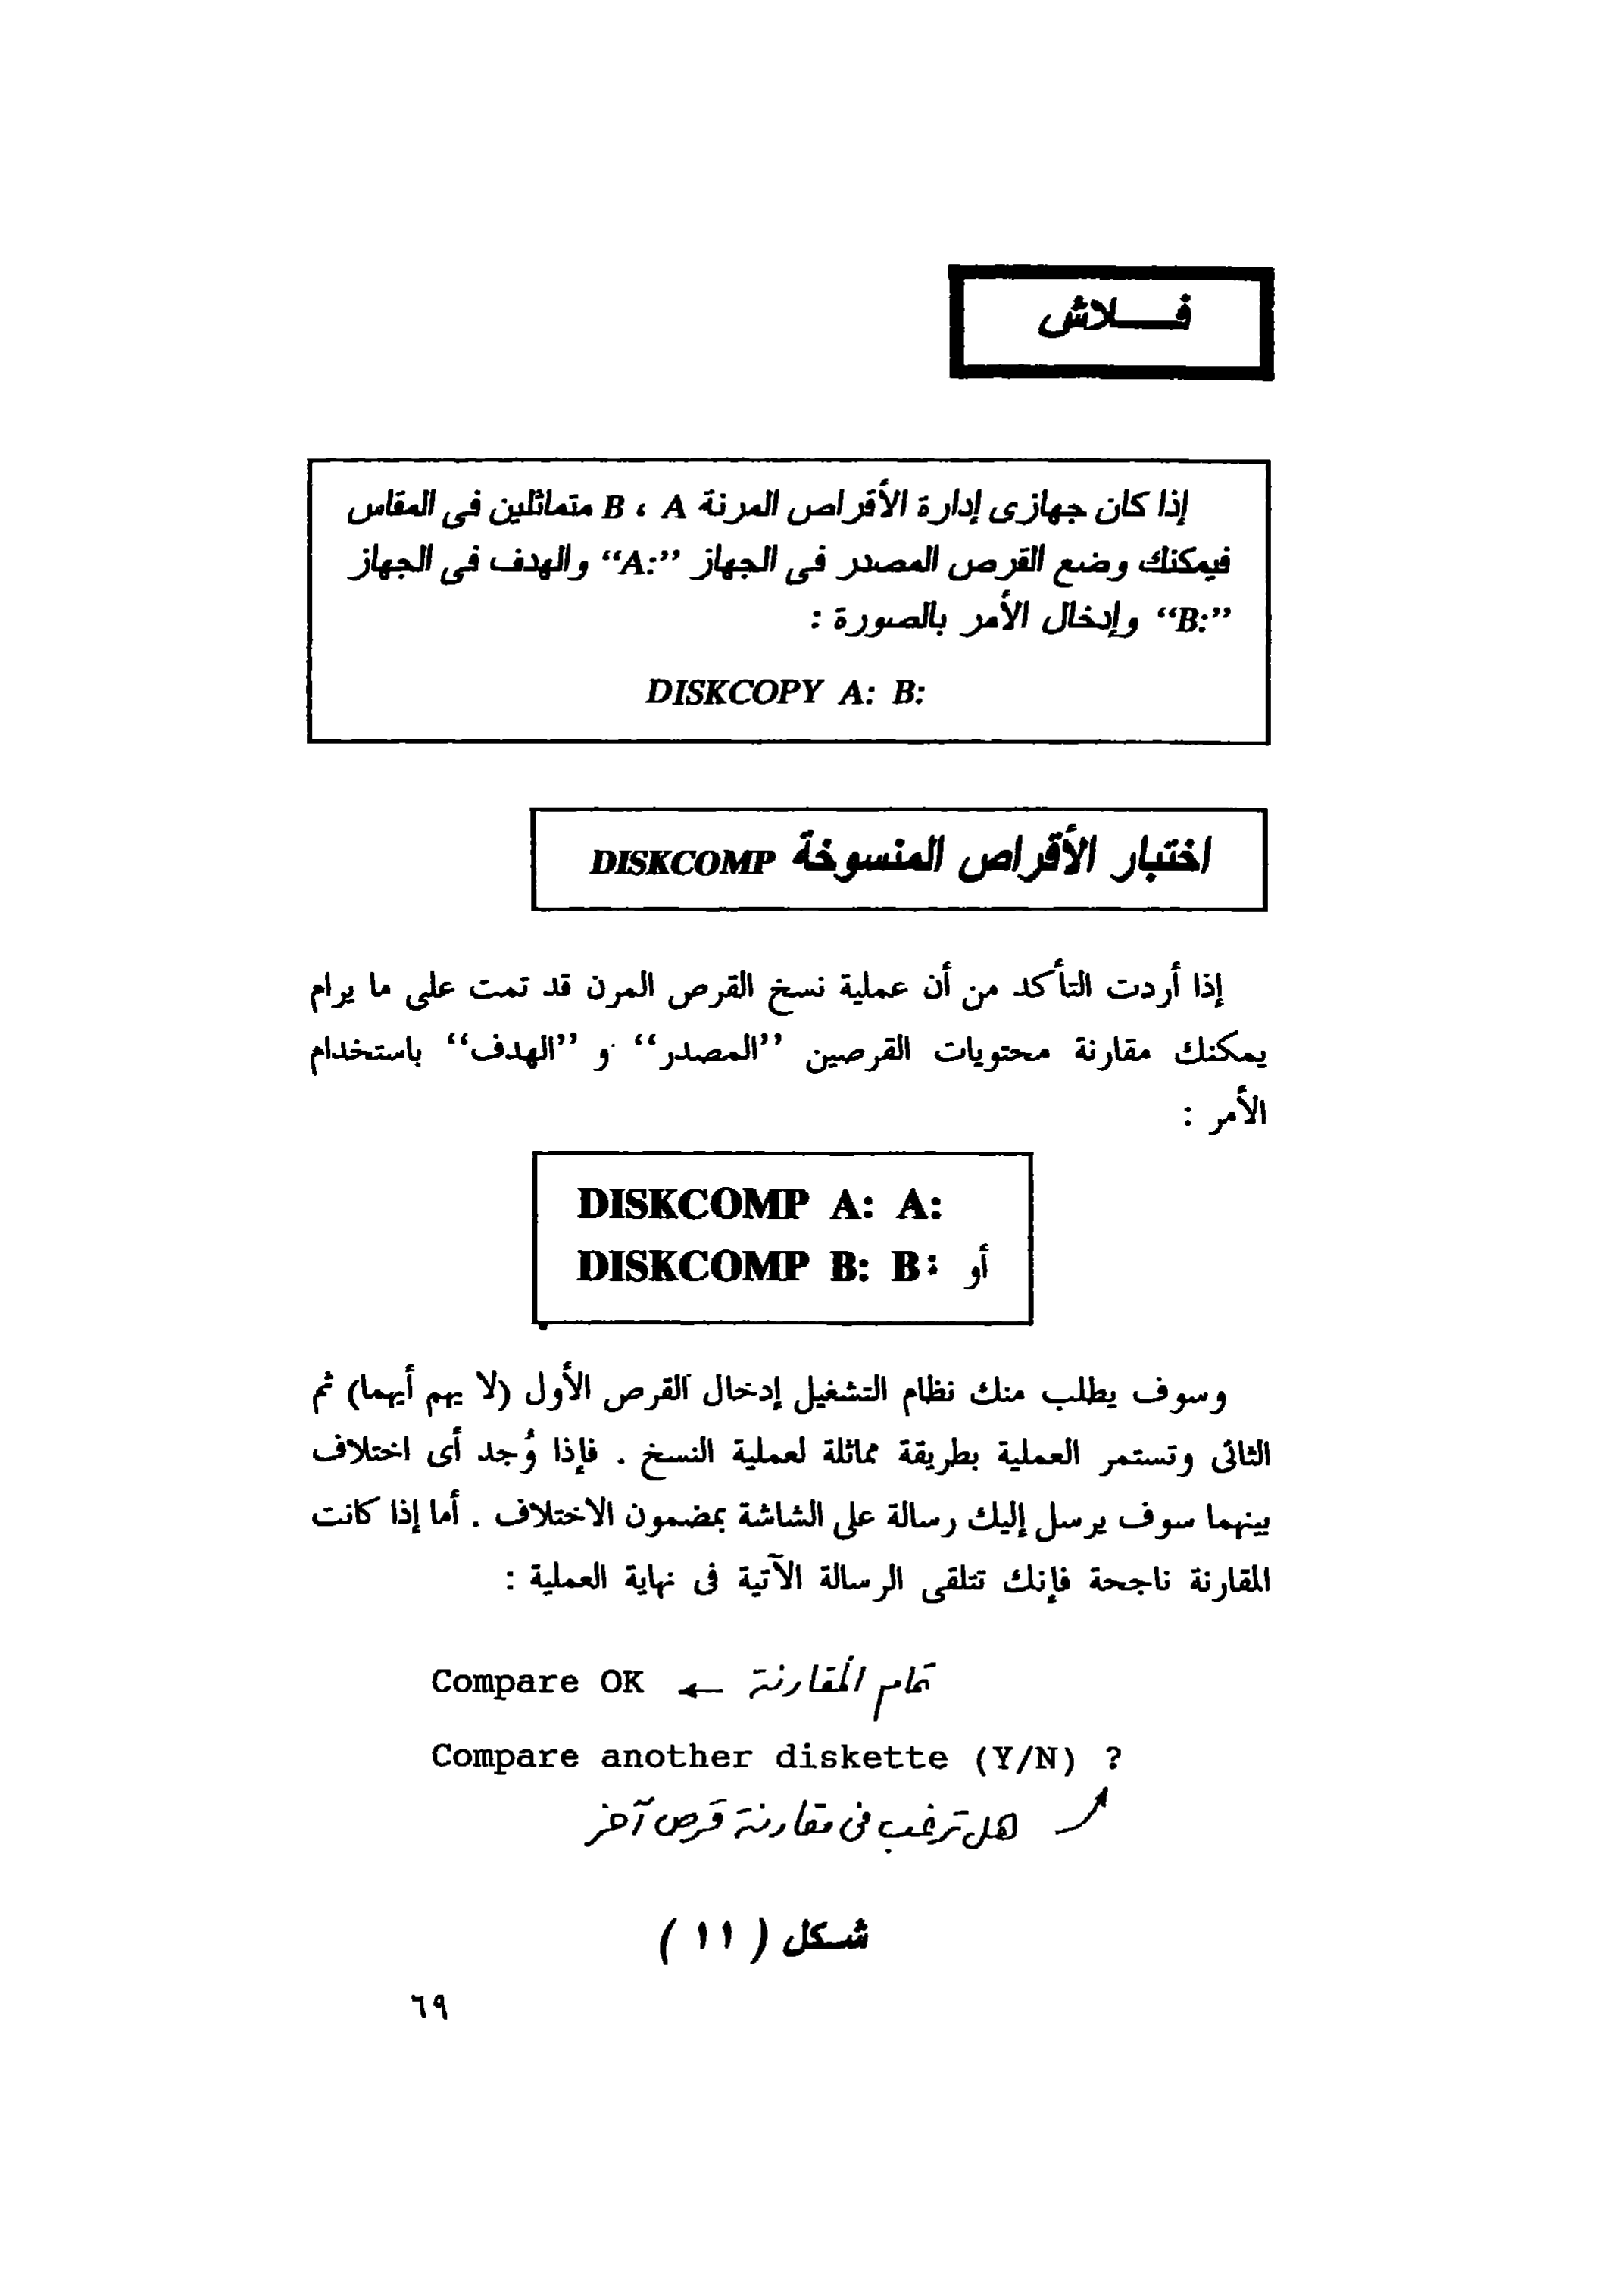 فـــلاش
إذا كان جهازى إدارة الأقراص المرنة A ، B متماثلين فى المقاس
فيمكنك وضع القرص المصدر فى الجهاز “A:” والهدف فى الجهاز
“B:” وإدخال الأمر بالصورة :
DISKCOPY A: B:
اختبار الأقراص المنسوخة DISKCOMP
إذا أردت التأكد من أن عملية نسخ القرص المرن قد تمت على ما يرام
يمكنك مقارنة محتويات القرصين ‘‘المصدر’’ و ‘‘الهدف’’ باستخدام
الأمر :
DISKCOMP A: A:
DISKCOMP B: B: أو
وسوف يطلب منك نظام التشغيل إدخال القرص الأول (لا يهم أيهما) ثم
الثانى وتستمر العملية بطريقة مماثلة لعملية النسخ . فإذا وُجد أى اختلاف
بينهما سوف يرسل إليك رسالة على الشاشة بمضمون الاختلاف . أما إذا كانت
المقارنة ناجحة فإنك تتلقى الرسالة الآتية فى نهاية العملية :
Compare OK ← تمام المقارنة
Compare another diskette (Y/N) ?
هل ترغب فى مقارنة قرص آخر
شـكل ( ١١ )
٦٩